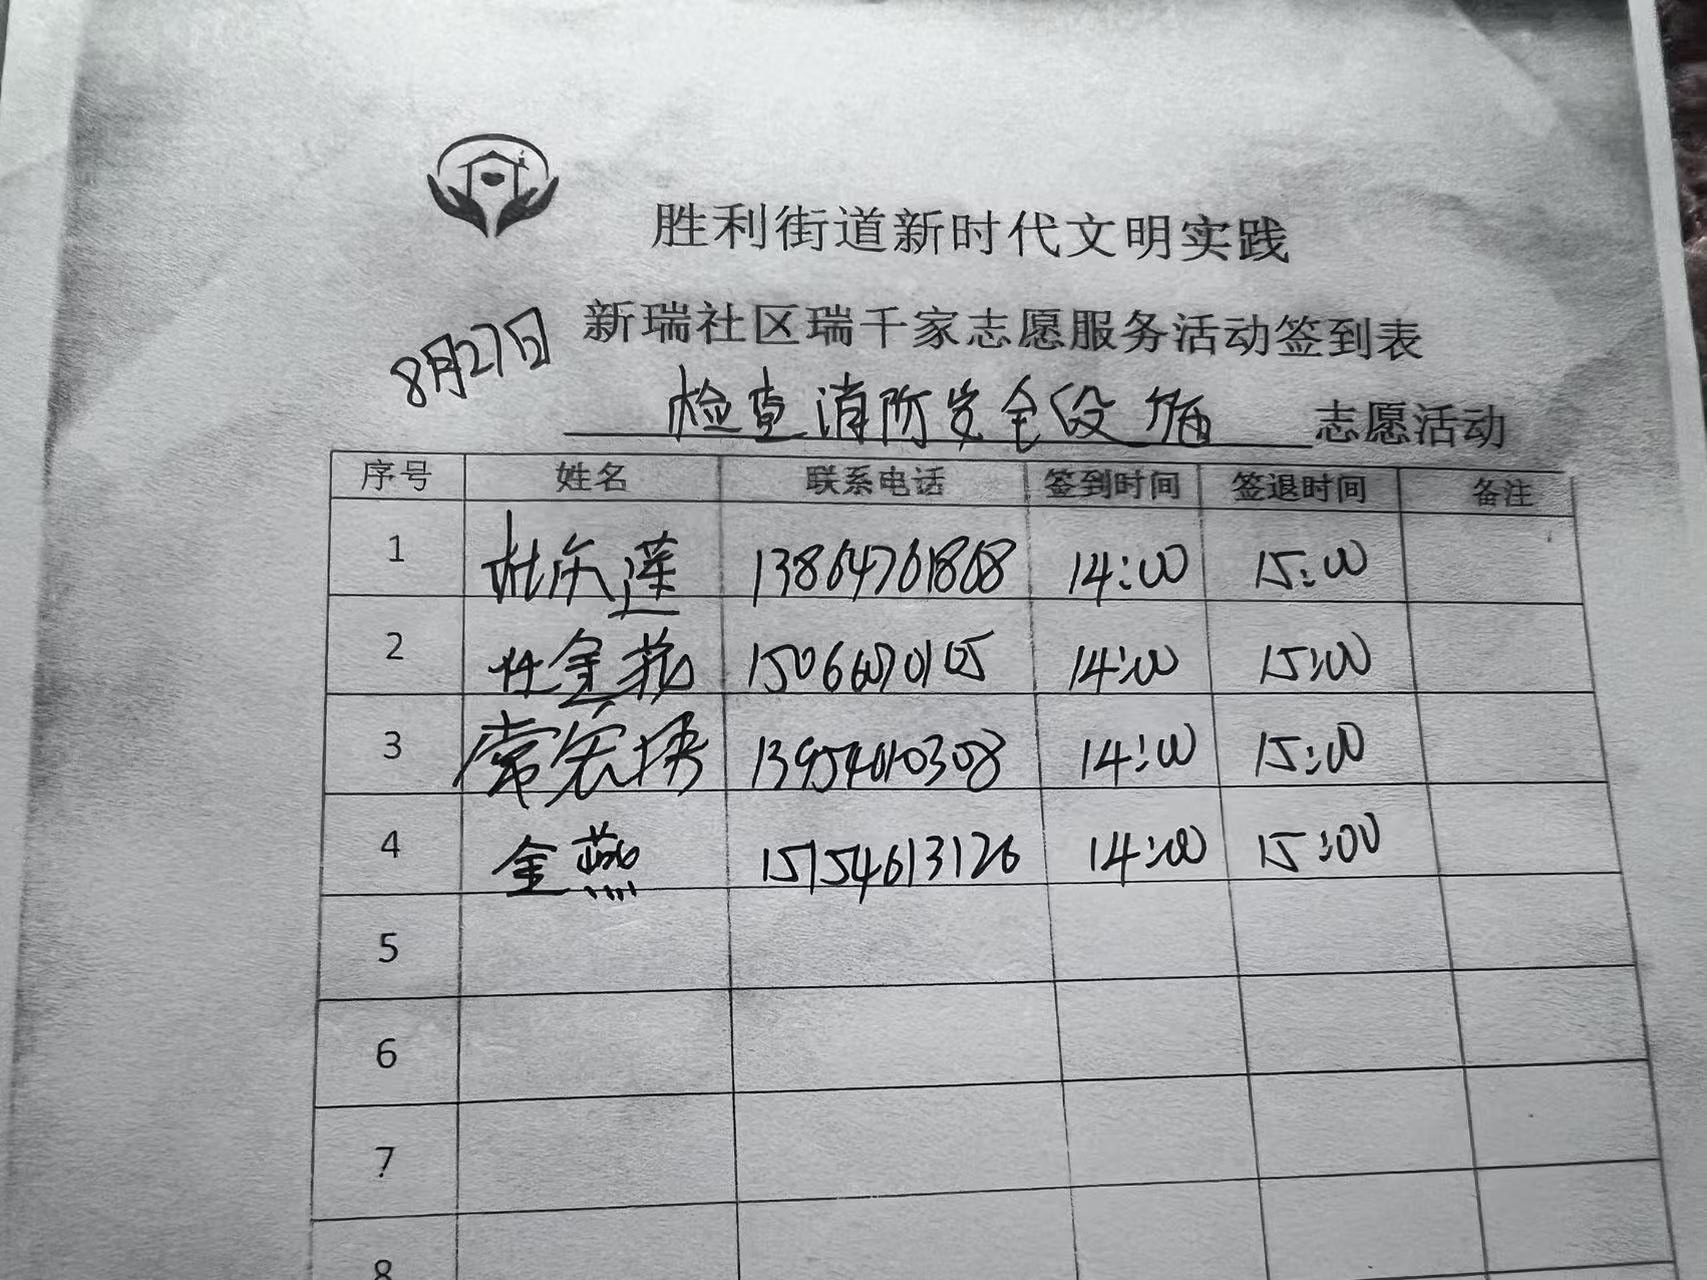 胜利街道新时代文明实践
新瑞社区瑞千家志愿服务活动签到表
8月27日
检查消防安全设施 志愿活动
序号 姓名 联系电话 签到时间 签退时间 备注
1 杜庆莲 13864761868 14:00 15:00
2 任金花 15066070105 14:00 15:00
3 常宏 13954610308 14:00 15:00
4 金燕 15154613126 14:00 15:00
5
6
7
8